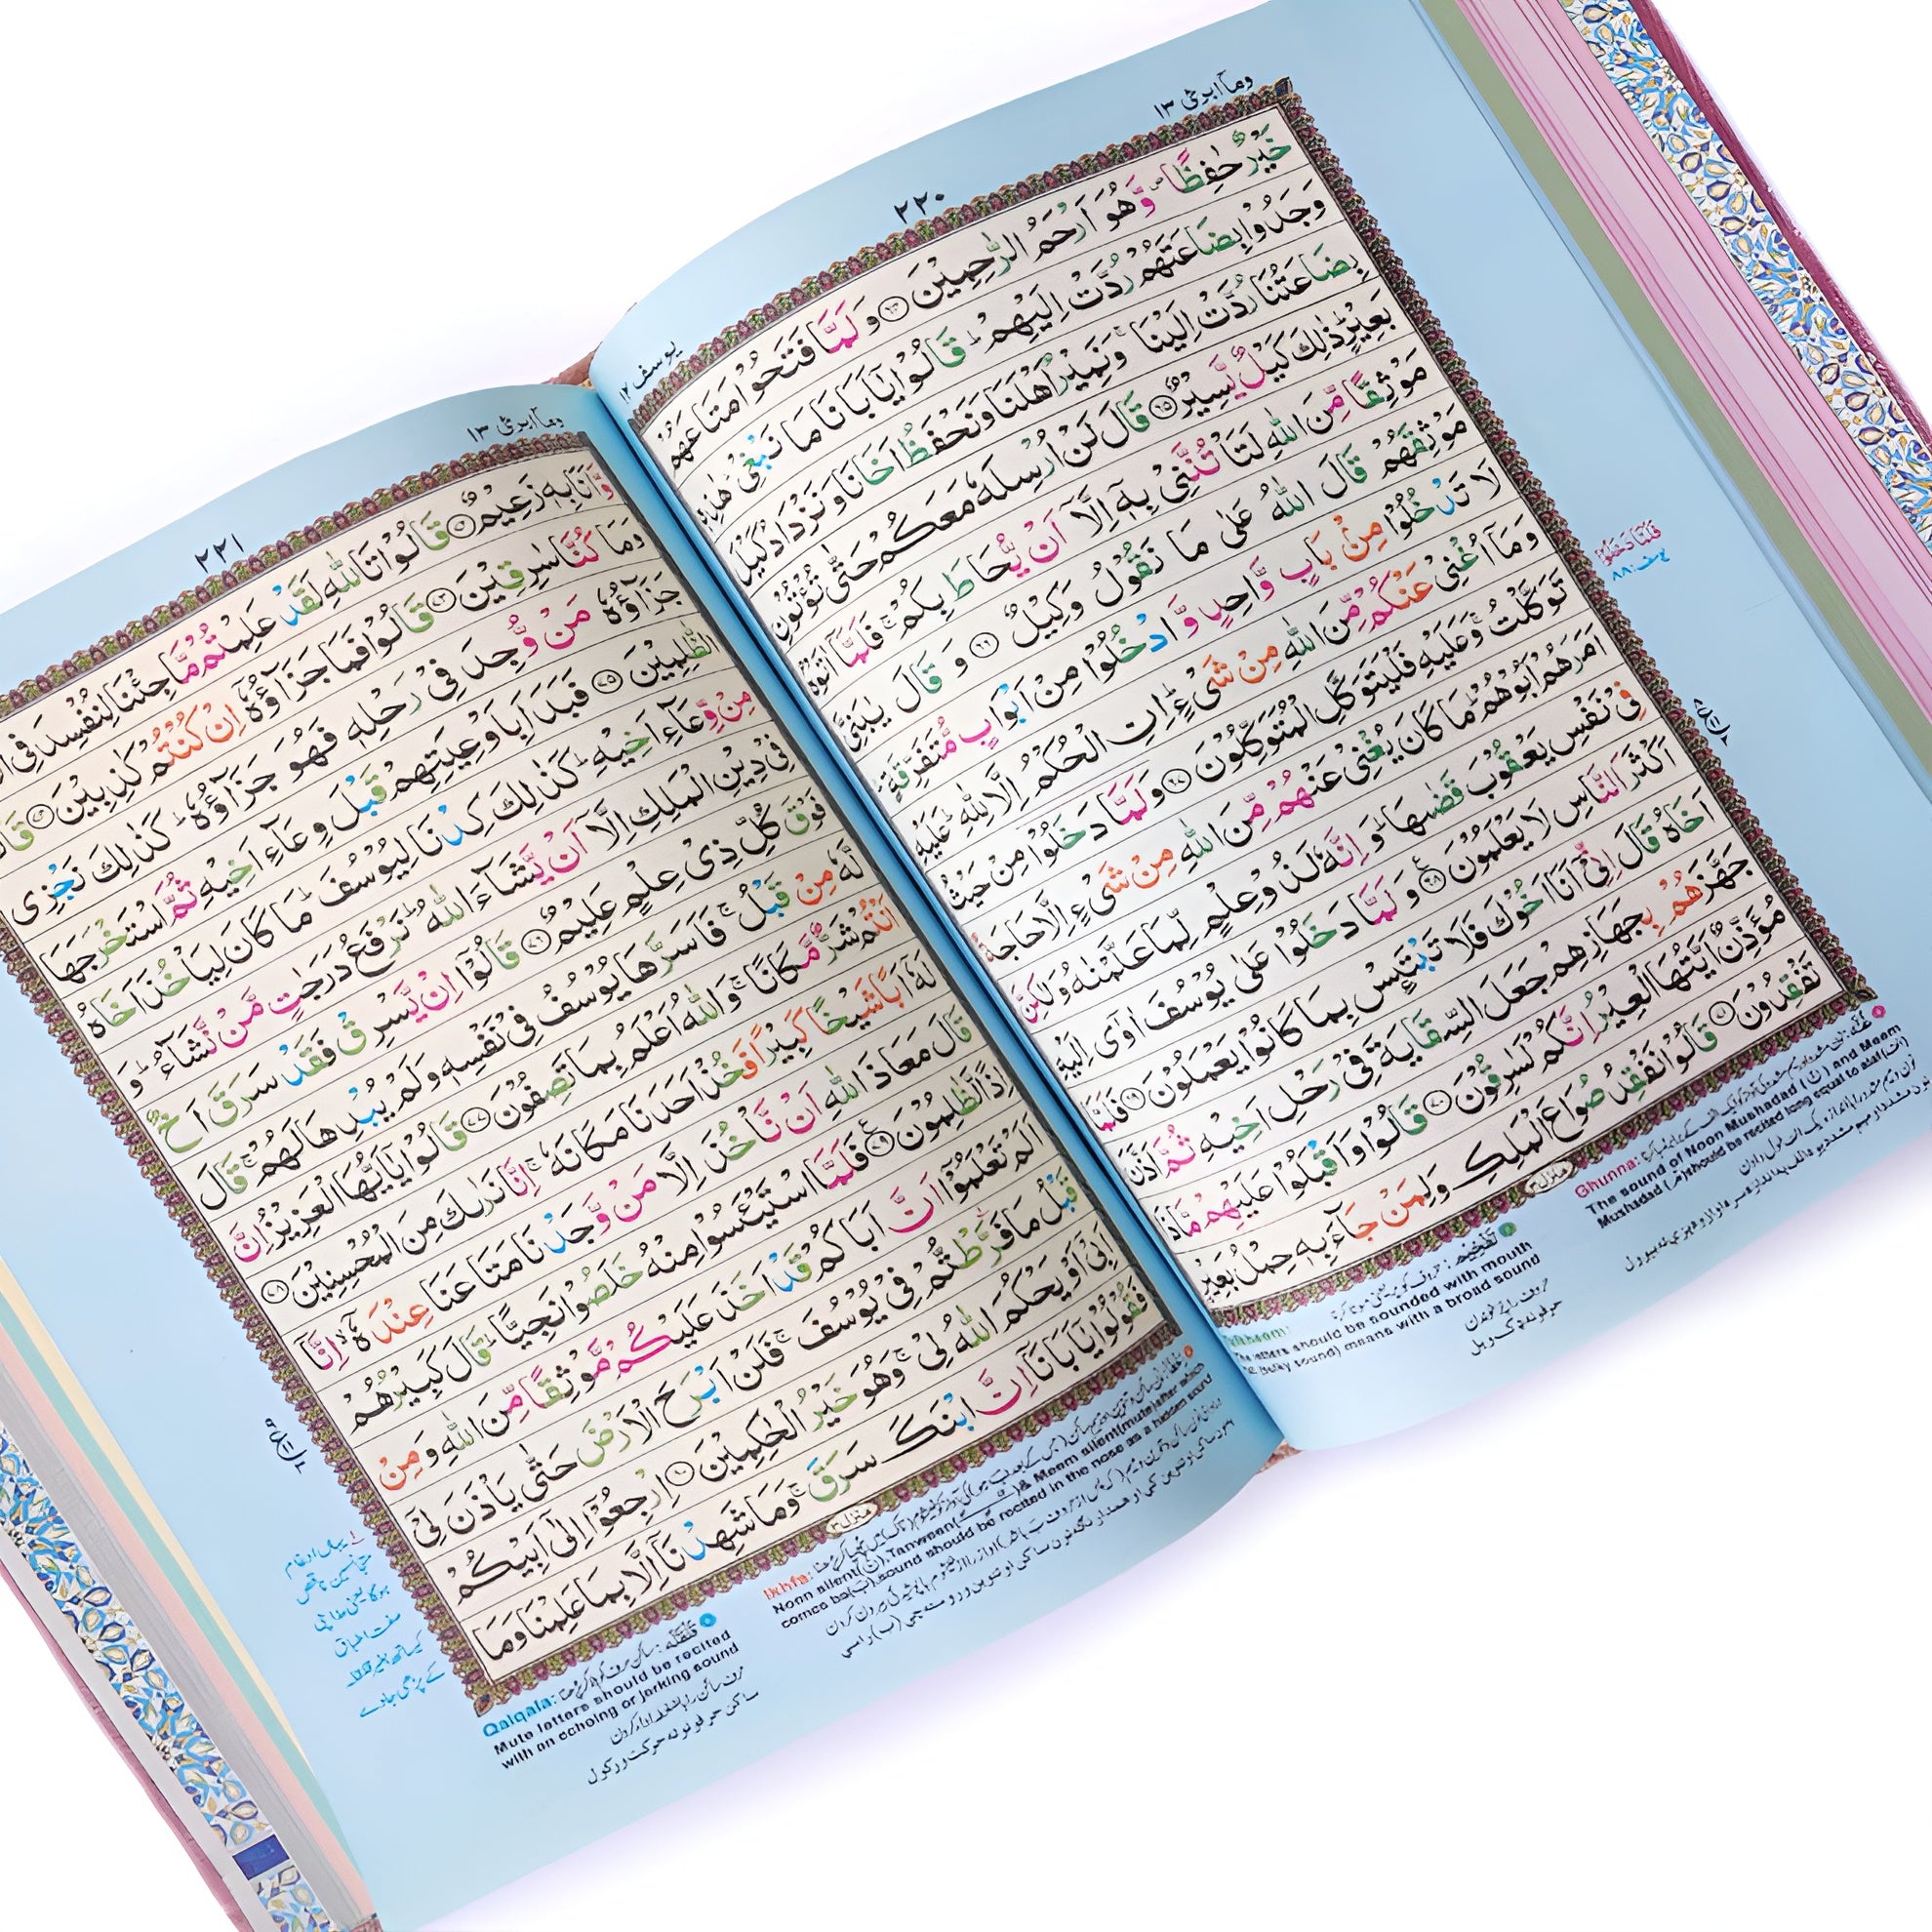 وماابرئ ١٣
٢٢٠
يوسف ١٢
خَيْرٌ حٰفِظًا ۪ وَّهُوَ اَرْحَمُ الرّٰحِمِيْنَ ۝٦٤ وَلَمَّا فَتَحُوْا مَتَاعَهُمْ
وَجَدُوْا بِضَاعَتَهُمْ رُدَّتْ اِلَيْهِمْ ؕ قَالُوْا يٰۤاَبَانَا مَا نَبْغِيْ ؕ هٰذِهٖ
بِضَاعَتُنَا رُدَّتْ اِلَيْنَا ۚ وَنَمِيْرُ اَهْلَنَا وَنَحْفَظُ اَخَانَا وَنَزْدَادُ كَيْلَ
بَعِيْرٍ ؕ ذٰلِكَ كَيْلٌ يَّسِيْرٌ ۝٦٥ قَالَ لَنْ اُرْسِلَهٗ مَعَكُمْ حَتّٰى تُؤْتُوْنِ
مَوْثِقًا مِّنَ اللّٰهِ لَتَاْتُنَّنِيْ بِهٖۤ اِلَّاۤ اَنْ يُّحَاطَ بِكُمْ ۚ فَلَمَّاۤ اٰتَوْهُ
مَوْثِقَهُمْ قَالَ اللّٰهُ عَلٰى مَا نَقُوْلُ وَكِيْلٌ ۝٦٦ وَقَالَ يٰبَنِيَّ
لَا تَدْخُلُوْا مِنْۢ بَابٍ وَّاحِدٍ وَّادْخُلُوْا مِنْ اَبْوَابٍ مُّتَفَرِّقَةٍ ؕ
وَمَاۤ اُغْنِيْ عَنْكُمْ مِّنَ اللّٰهِ مِنْ شَيْءٍ ؕ اِنِ الْحُكْمُ اِلَّا لِلّٰهِ ؕ عَلَيْهِ
تَوَكَّلْتُ ۚ وَعَلَيْهِ فَلْيَتَوَكَّلِ الْمُتَوَكِّلُوْنَ ۝٦٧ وَلَمَّا دَخَلُوْا مِنْ حَيْثُ
اَمَرَهُمْ اَبُوْهُمْ ؕ مَا كَانَ يُغْنِيْ عَنْهُمْ مِّنَ اللّٰهِ مِنْ شَيْءٍ اِلَّا حَاجَةً
فِيْ نَفْسِ يَعْقُوْبَ قَضٰىهَا ؕ وَاِنَّهٗ لَذُوْ عِلْمٍ لِّمَا عَلَّمْنٰهُ وَلٰكِنَّ
اَكْثَرَ النَّاسِ لَا يَعْلَمُوْنَ ۝٦٨ وَلَمَّا دَخَلُوْا عَلٰى يُوْسُفَ اٰوٰۤى اِلَيْهِ
اَخَاهُ قَالَ اِنِّيْۤ اَنَا اَخُوْكَ فَلَا تَبْتَىِٕسْ بِمَا كَانُوْا يَعْمَلُوْنَ ۝٦٩ فَلَمَّا
جَهَّزَهُمْ بِجَهَازِهِمْ جَعَلَ السِّقَايَةَ فِيْ رَحْلِ اَخِيْهِ ثُمَّ اَذَّنَ
مُؤَذِّنٌ اَيَّتُهَا الْعِيْرُ اِنَّكُمْ لَسٰرِقُوْنَ ۝٧٠ قَالُوْا وَاَقْبَلُوْا عَلَيْهِمْ مَّاذَا
تَفْقِدُوْنَ ۝٧١ قَالُوْا نَفْقِدُ صُوَاعَ الْمَلِكِ وَلِمَنْ جَآءَ بِهٖ حِمْلُ بَعِيْرٍ
Ghunna:
The sound of Noon Mushadad (نّ) and Meem
Mushdad (مّ) should be recited long equal to alaf
تَفْخِيْم
letters should be sounded with mouth
sound) means with a broad sound
وماابرئ ١٣
٢٢١
وَّاَنَا بِهٖ زَعِيْمٌ ۝٧٢ قَالُوْا تَاللّٰهِ لَقَدْ عَلِمْتُمْ مَّا جِئْنَا لِنُفْسِدَ فِي
وَمَا كُنَّا سٰرِقِيْنَ ۝٧٣ قَالُوْا فَمَا جَزَآؤُهٗۤ اِنْ كُنْتُمْ كٰذِبِيْنَ ۝٧٤
جَزَآؤُهٗ مَنْ وُّجِدَ فِيْ رَحْلِهٖ فَهُوَ جَزَآؤُهٗ ؕ كَذٰلِكَ نَجْزِي
الظّٰلِمِيْنَ ۝٧٥ فَبَدَاَ بِاَوْعِيَتِهِمْ قَبْلَ وِعَآءِ اَخِيْهِ ثُمَّ اسْتَخْرَجَهَا
مِنْ وِّعَآءِ اَخِيْهِ ؕ كَذٰلِكَ كِدْنَا لِيُوْسُفَ ؕ مَا كَانَ لِيَاْخُذَ اَخَاهُ
فِيْ دِيْنِ الْمَلِكِ اِلَّاۤ اَنْ يَّشَآءَ اللّٰهُ ؕ نَرْفَعُ دَرَجٰتٍ مَّنْ نَّشَآءُ ؕ وَ
فَوْقَ كُلِّ ذِيْ عِلْمٍ عَلِيْمٌ ۝٧٦ قَالُوْۤا اِنْ يَّسْرِقْ فَقَدْ سَرَقَ اَخٌ
لَّهٗ مِنْ قَبْلُ ۚ فَاَسَرَّهَا يُوْسُفُ فِيْ نَفْسِهٖ وَلَمْ يُبْدِهَا لَهُمْ ۚ قَالَ
اَنْتُمْ شَرٌّ مَّكَانًا ۚ وَاللّٰهُ اَعْلَمُ بِمَا تَصِفُوْنَ ۝٧٧ قَالُوْا يٰۤاَيُّهَا الْعَزِيْزُ اِنَّ
لَهٗۤ اَبًا شَيْخًا كَبِيْرًا فَخُذْ اَحَدَنَا مَكَانَهٗ ۚ اِنَّا نَرٰىكَ مِنَ الْمُحْسِنِيْنَ ۝٧٨
قَالَ مَعَاذَ اللّٰهِ اَنْ نَّاْخُذَ اِلَّا مَنْ وَّجَدْنَا مَتَاعَنَا عِنْدَهٗۤ ۙ اِنَّاۤ
اِذًا لَّظٰلِمُوْنَ ۝٧٩ فَلَمَّا اسْتَيْـَٔسُوْا مِنْهُ خَلَصُوْا نَجِيًّا ؕ قَالَ كَبِيْرُهُمْ
اَلَمْ تَعْلَمُوْۤا اَنَّ اَبَاكُمْ قَدْ اَخَذَ عَلَيْكُمْ مَّوْثِقًا مِّنَ اللّٰهِ وَمِنْ
قَبْلُ مَا فَرَّطْتُّمْ فِيْ يُوْسُفَ ۚ فَلَنْ اَبْرَحَ الْاَرْضَ حَتّٰى يَاْذَنَ لِيْۤ
اَبِيْۤ اَوْ يَحْكُمَ اللّٰهُ لِيْ ۚ وَهُوَ خَيْرُ الْحٰكِمِيْنَ ۝٨٠ اِرْجِعُوْۤا اِلٰۤى اَبِيْكُمْ
فَقُوْلُوْا يٰۤاَبَانَاۤ اِنَّ ابْنَكَ سَرَقَ ۚ وَمَا شَهِدْنَاۤ اِلَّا بِمَا عَلِمْنَا وَمَا
Ikhfa:
Noon silent(نْ),Tanween & Meem silent(mute)after which
comes ba(ب)sound should be recited in the nose as a hidden sound
Qalqala: قَلْقَلَه
Mute letters should be recited
with an echoing or jerking sound